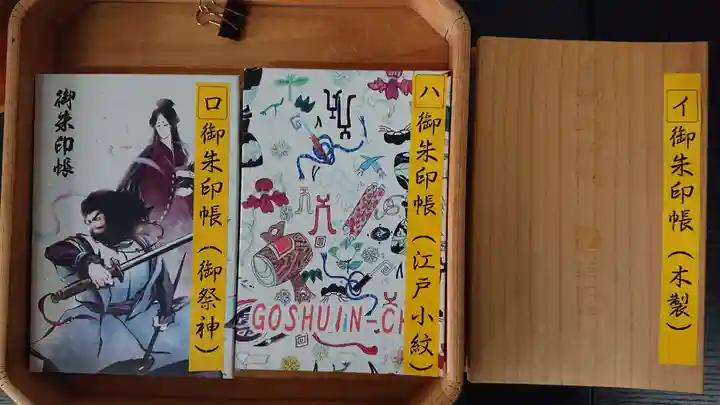 イ 御朱印帳(木製)
ハ 御朱印帳(江戸小紋)
GOSHUIN-CH
ロ 御朱印帳(御祭神)
御朱印帳